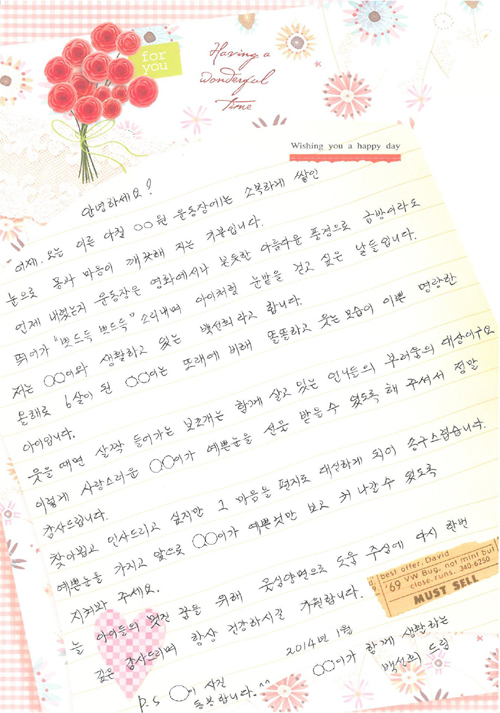 for
you
Having a
Wonderful
Time
Wishing you a happy day
안녕하세요?
어제, 오늘 이른 아침 OO원 운동장에는 소복하게 쌓인
눈으로 몸과 마음이 깨끗해 지는 기분입니다.
언제 내렸는지 운동장은 영화에서나 볼듯한 아름다운 풍경으로 금방이라도
뛰어가 "뽀드득 뽀드득" 소리내며 아이처럼 눈밭을 걷고 싶은 날들입니다.
저는 OO이와 생활하고 있는 백선희라고 합니다.
올해로 6살이 된 OO이는 또래에 비해 똘똘하고 웃는 모습이 이쁜 명랑한
아이입니다.
웃을 때면 살짝 들어가는 보조개는 함께 살고 있는 언니들의 부러움의 대상이구요
이렇게 사랑스러운 OO이가 예쁜눈을 선물 받을 수 있도록 해 주셔서 정말
감사드립니다.
찾아뵙고 인사드리고 싶지만 그 마음을 편지로 대신하게 되어 송구스럽습니다.
예쁜눈을 가지고 앞으로 OO이가 예쁜것만 보고 커 나갈 수 있도록
지켜봐 주세요.
늘 아이들의 멋진 꿈을 위해 물심양면으로 도움 주심에 다시 한번
깊은 감사드리며 항상 건강하시길 기원합니다.
2014년 1월
OO이가 함께 생활하는
백선희 드림
P.S O이 사진
동봉합니다.^^
best offer. David
'69 VW Bug, not mint but
close-runs. 340-6250
MUST SELL